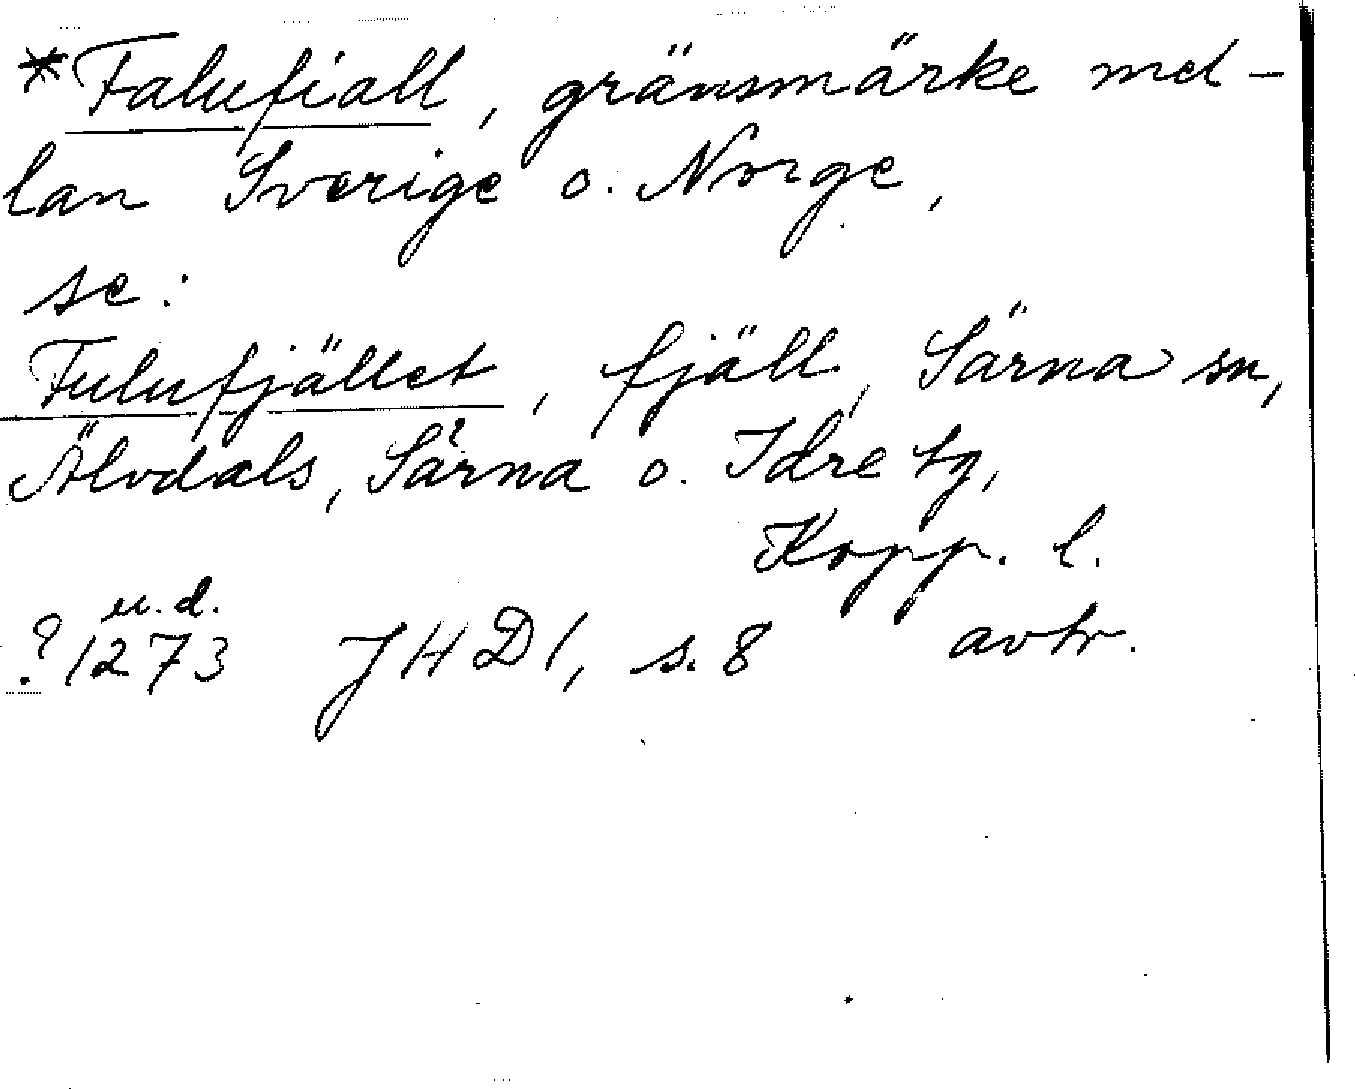 *Falufiall, gränsmärke mel-
lan Sverige o. Norge,
se:
Fulufjället, fjäll, Särna sn,
Älvdals, Särna o. Idre tg,
Kopp. l.
u.d.
?1273 JHD1, s. 8 avtr.